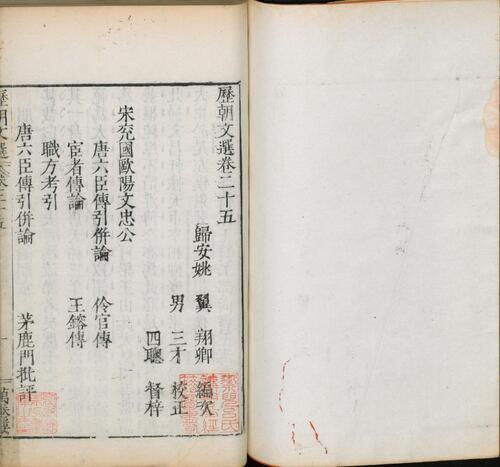 歷朝文選卷二十五
歸安姚 翼 翔卿 編次
男 三才 校正
四聰 督梓
宋兗國歐陽文忠公
唐六臣傳引併論 伶官傳
宦者傳論 王鎔傳
職方考引
唐六臣傳引併論 茅鹿門批評
歷朝文選
一